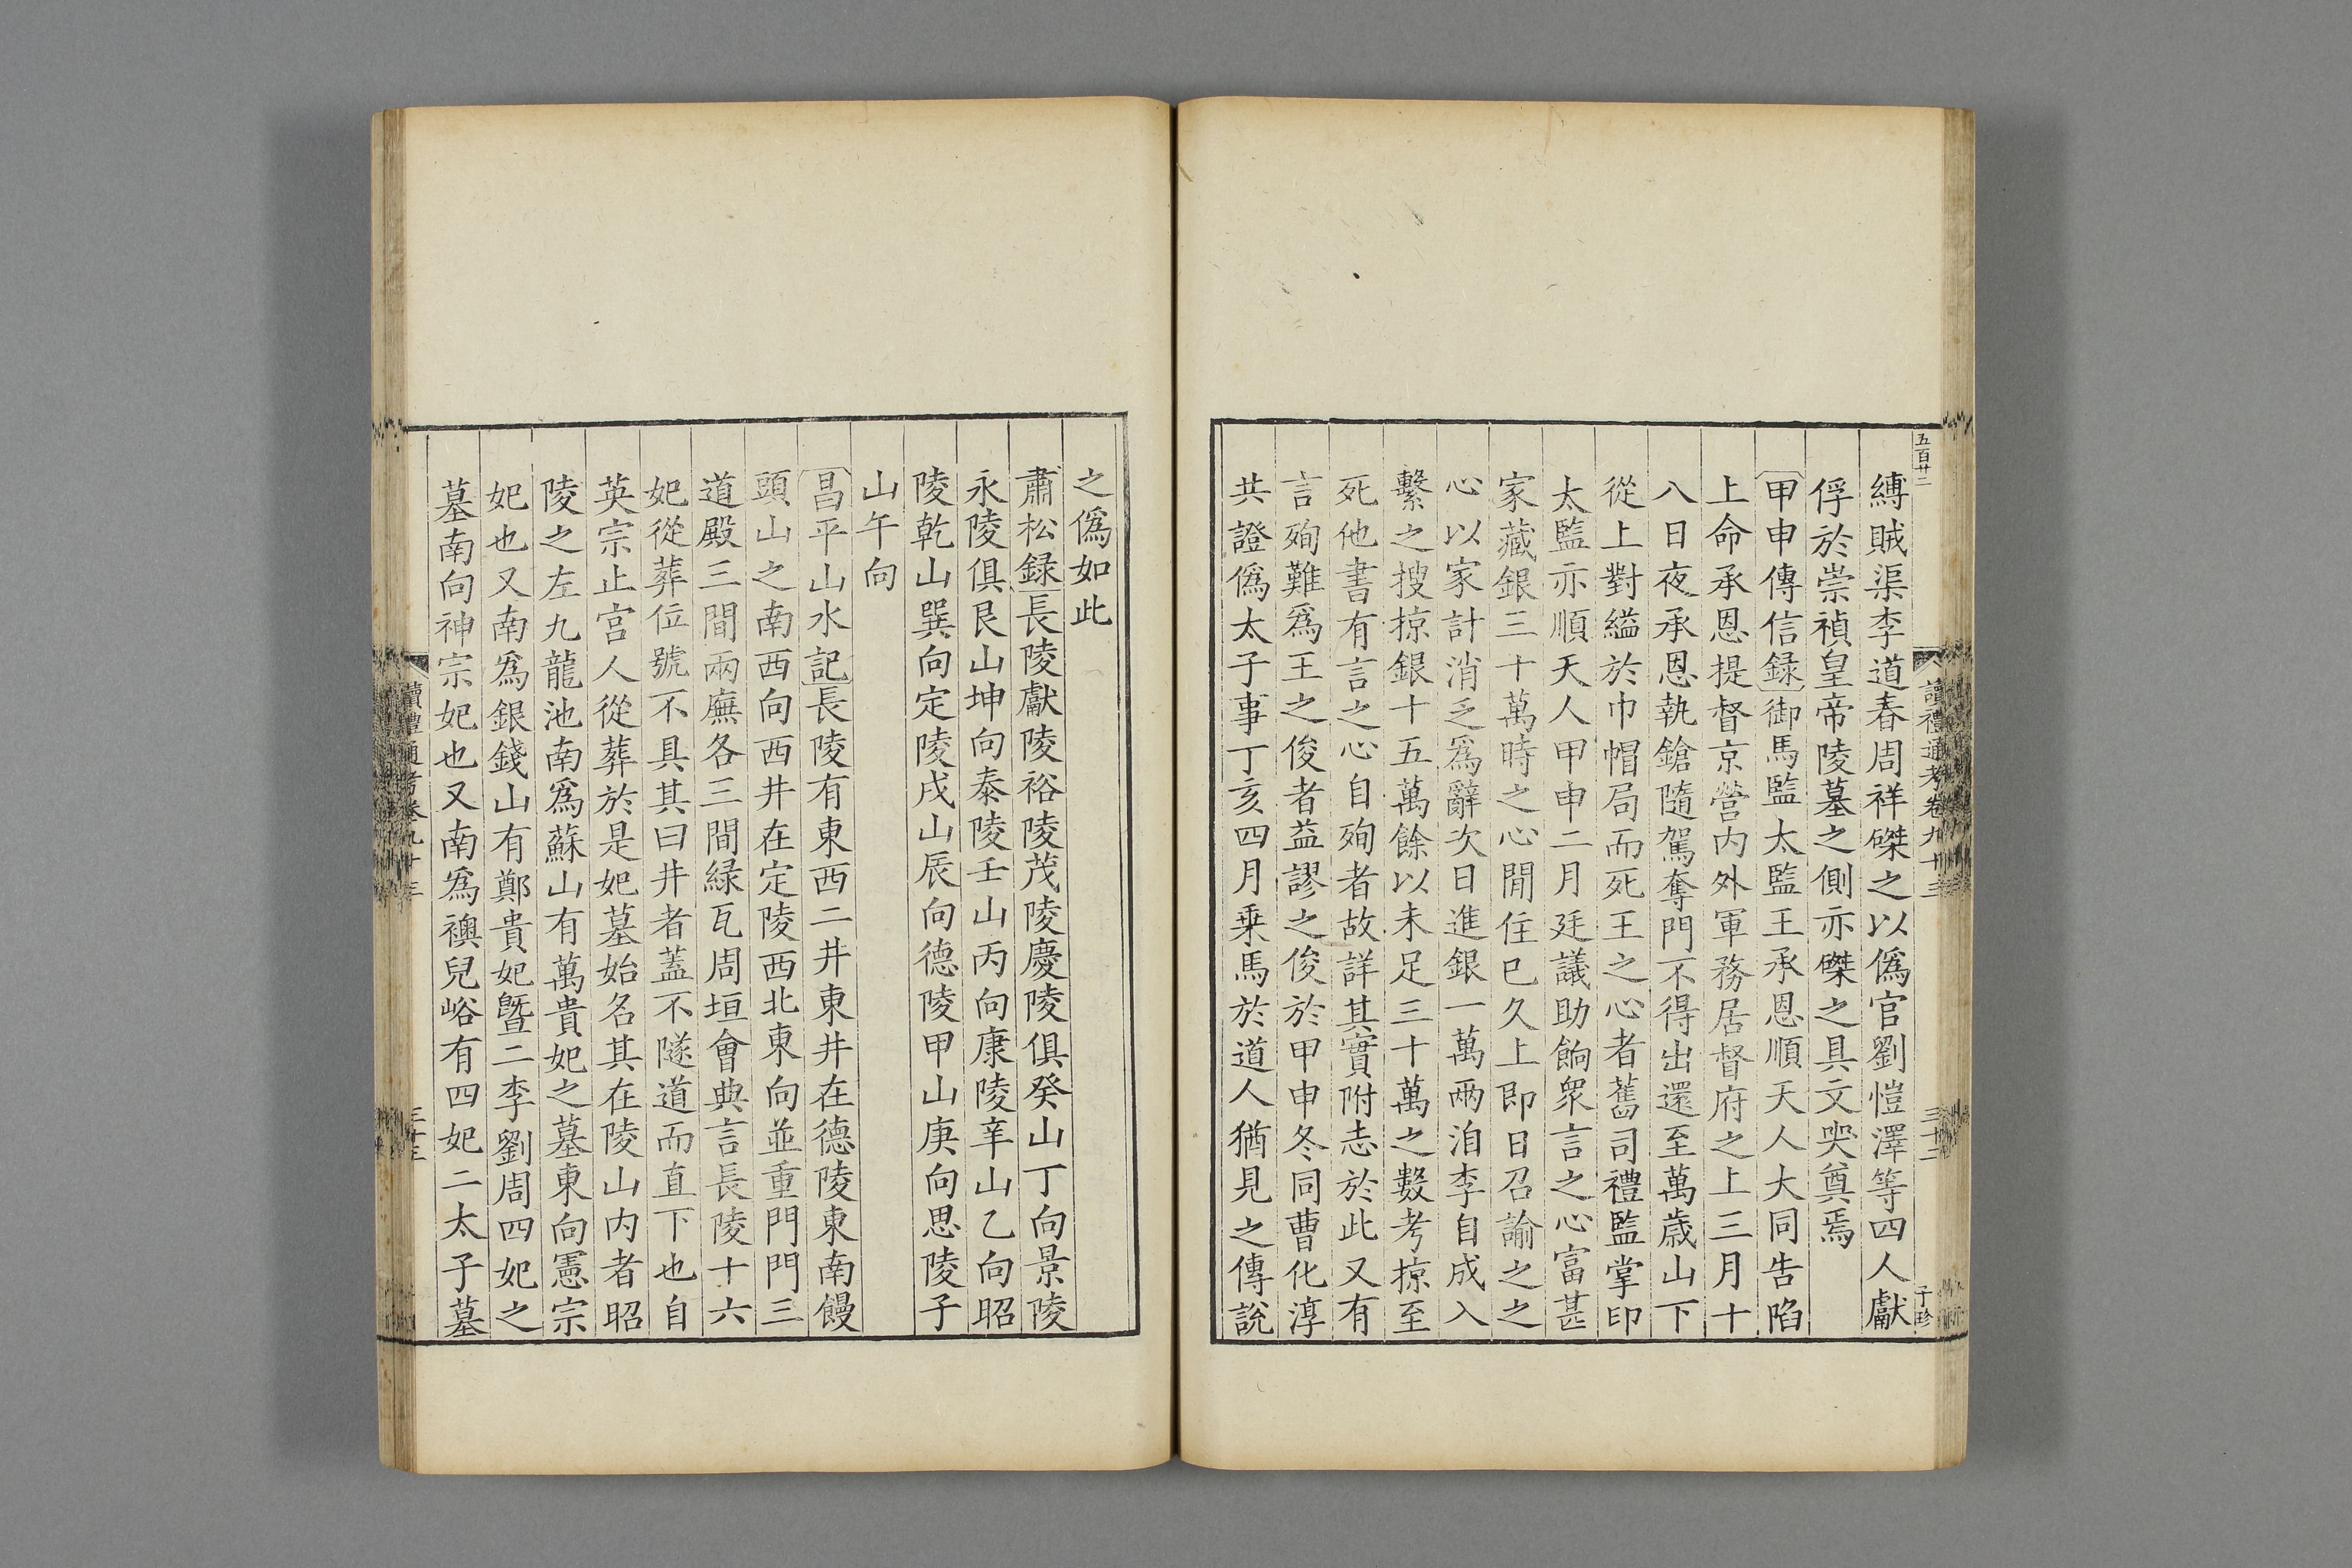 五百廿二
讀禮通考卷九十三
三十二
子珍
縛賊渠李道春周祥磔之以僞官劉愷澤等四人獻
俘於崇禎皇帝陵墓之側亦磔之具文哭奠焉
甲申傳信録御馬監太監王承恩順天人大同告陷
上命承恩提督京營内外軍務居督府之上三月十
八日夜承恩執鎗隨駕奪門不得出還至萬歳山下
從上對縊於巾帽局而死王之心者舊司禮監掌印
太監亦順天人甲申二月廷議助餉衆言之心富甚
家藏銀三十萬時之心閒住已久上即日召諭之之
心以家計消乏爲辭次日進銀一萬兩洎李自成入
繫之搜掠銀十五萬餘以未足三十萬之數考掠至
死他書有言之心自殉者故詳其實附志於此又有
言殉難爲王之俊者益謬之俊於甲申冬同曹化淳
共證僞太子事丁亥四月乗馬於道人猶見之傳說
之僞如此
肅松録長陵獻陵裕陵茂陵慶陵俱癸山丁向景陵
永陵俱艮山坤向泰陵壬山丙向康陵辛山乙向昭
陵乾山巽向定陵戌山辰向德陵甲山庚向思陵子
山午向
昌平山水記長陵有東西二井東井在德陵東南饅
頭山之南西向西井在定陵西北東向並重門門三
道殿三間兩廡各三間緑瓦周垣會典言長陵十六
妃從葬位號不具其曰井者蓋不隧道而直下也自
英宗止宫人從葬於是妃墓始名其在陵山内者昭
陵之左九龍池南爲蘇山有萬貴妃之墓東向憲宗
妃也又南爲銀錢山有鄭貴妃曁二李劉周四妃之
墓南向神宗妃也又南爲襖兒峪有四妃二太子墓
讀禮通考卷九十三
三十三